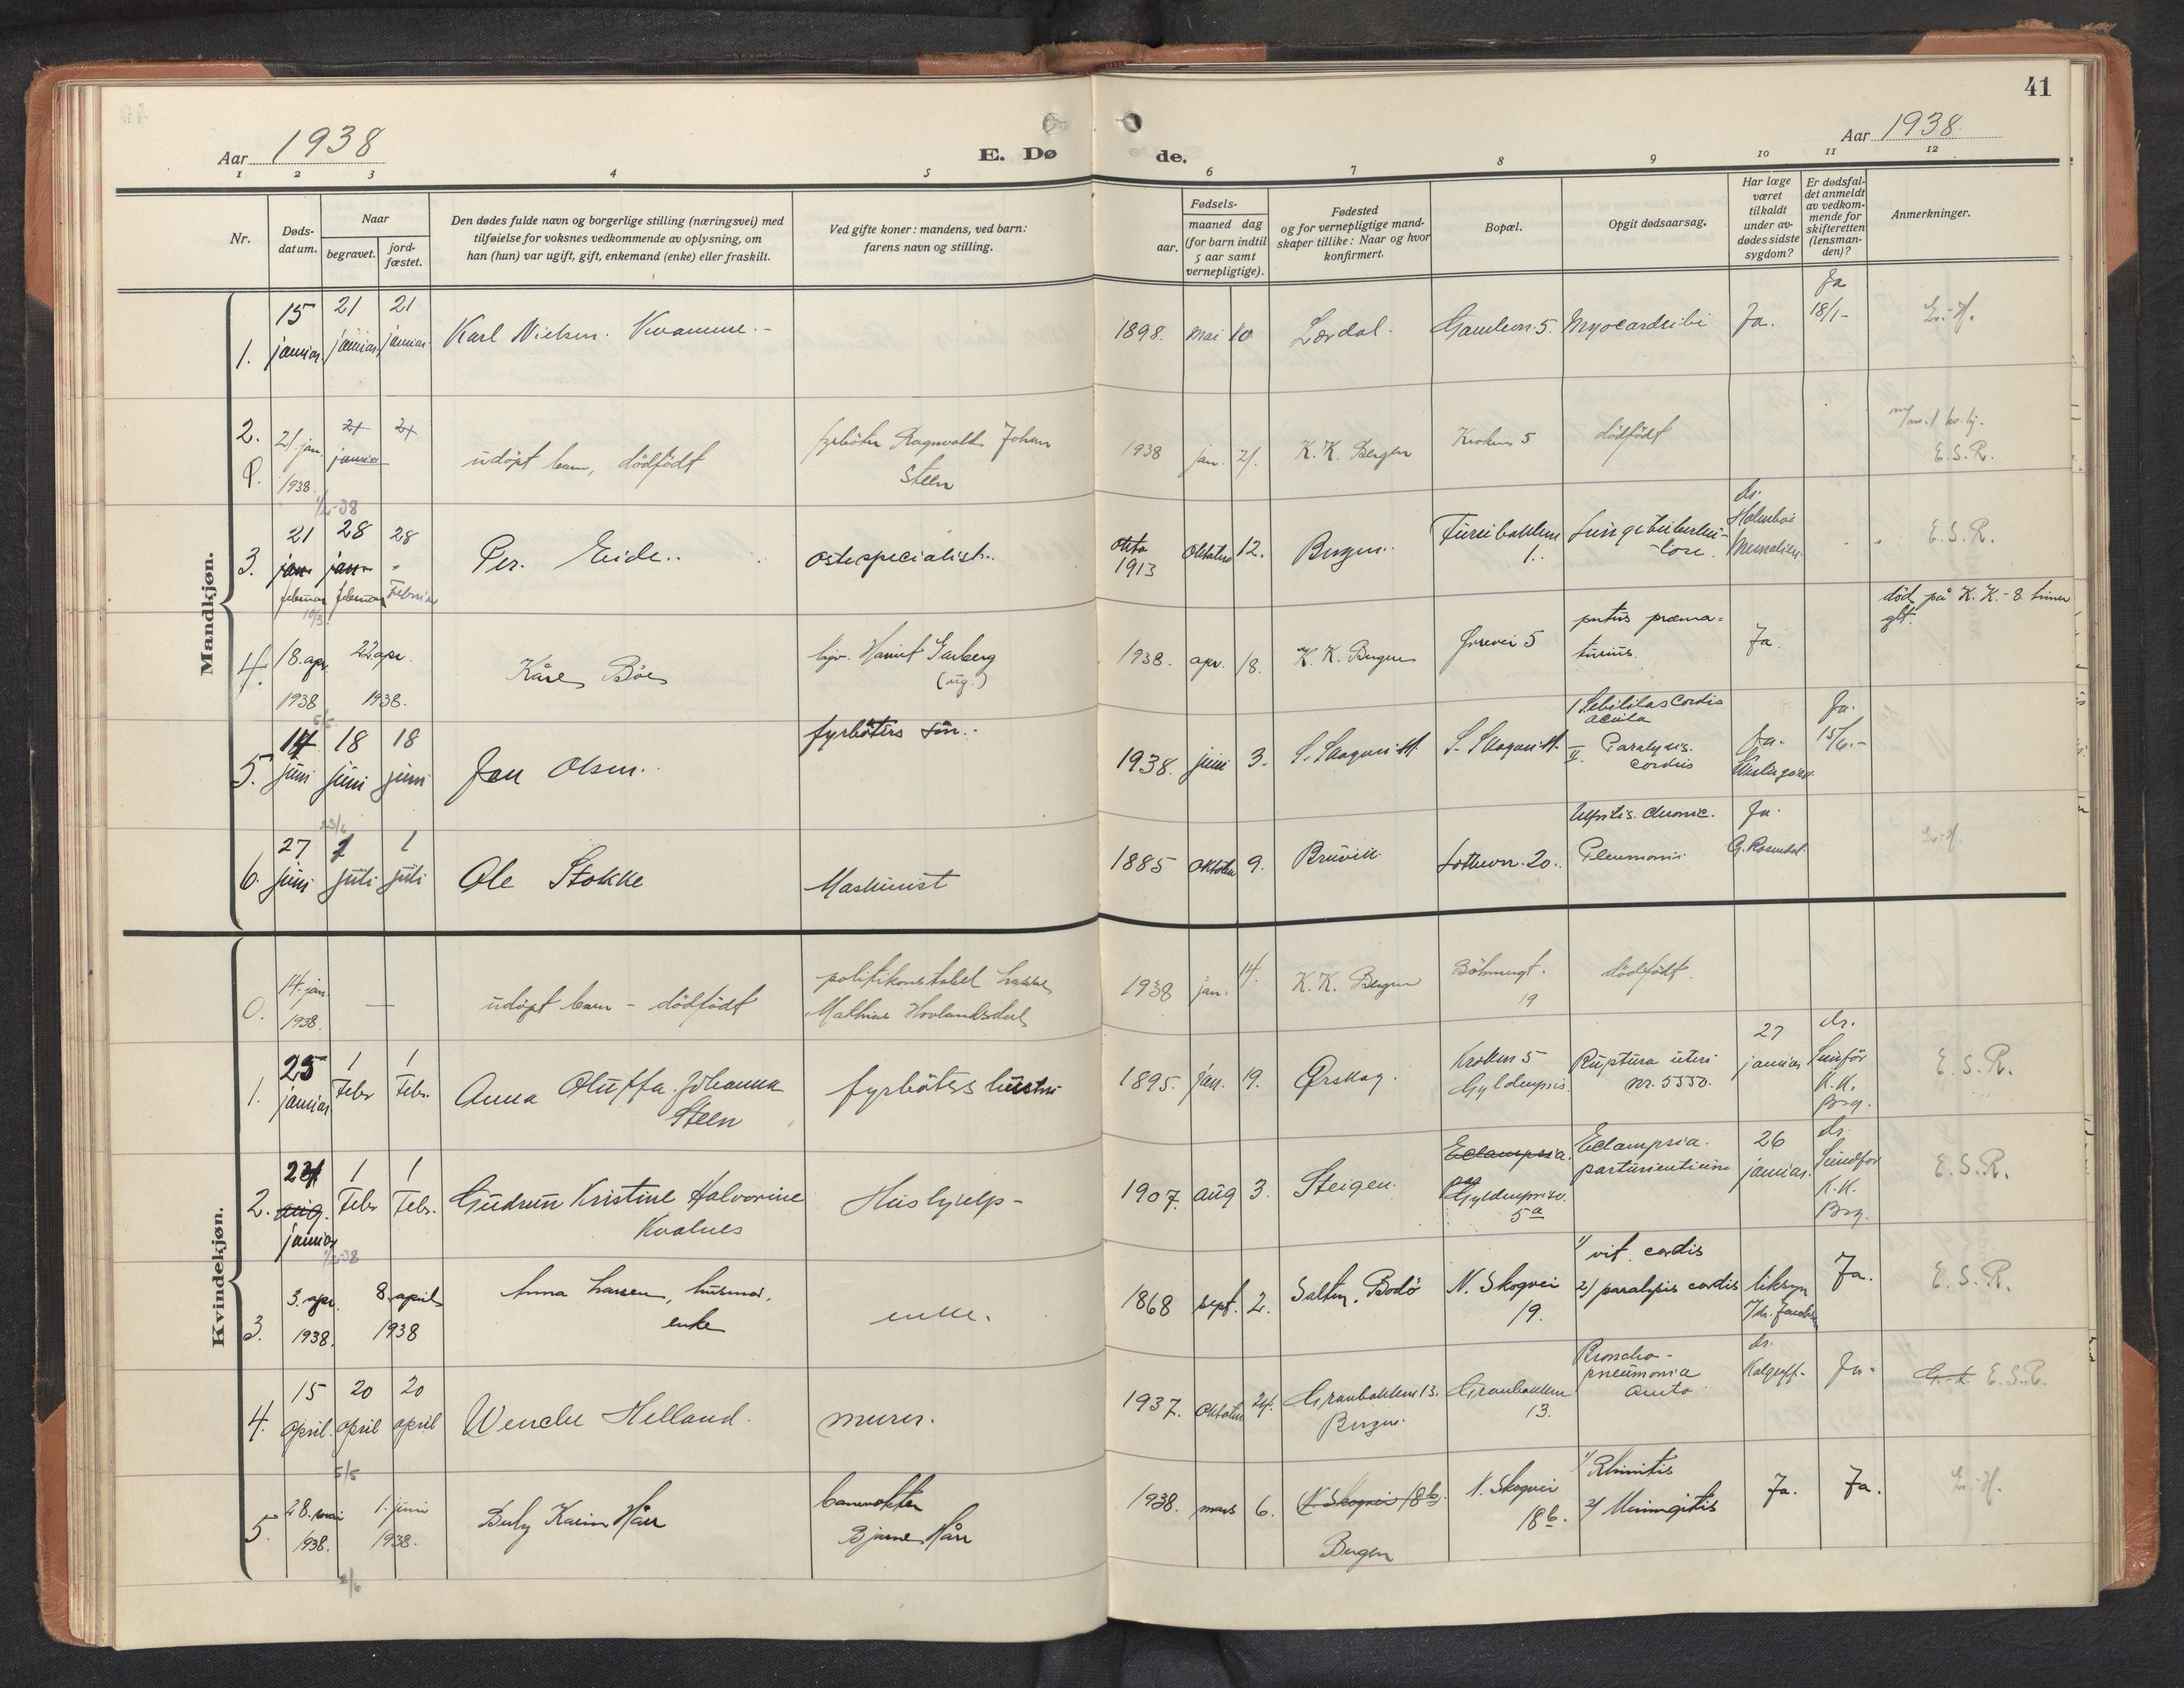 41
Aar 1938
E. Dø
de.
Aar 1938.
1 2 3 4 5 6 7 8 9 10 11 12
Nr.
Døds-
datum.
Naar
begravet.
jord-
fæstet.
Den dødes fulde navn og borgerlige stilling (næringsvei) med
tilføielse for voksnes vedkommende av oplysning, om
han (hun) var ugift, gift, enkemand (enke) eller fraskilt.
Ved gifte koner: mandens, ved barn:
farens navn og stilling.
Fødsels-
aar.
maaned dag
(for barn indtil
5 aar samt
vernepligtige).
Fødested
og for vernepligtige mand-
skaper tillike: Naar og hvor
konfirmert.
Bopæl.
Opgit dødsaarsag.
Har læge
været
tilkaldt
under av-
dødes sidste
sygdom?
Er dødsfal-
det anmeldt
av vedkom-
mende for
skifteretten
(lensman-
den)?
Anmerkninger.
Mandkjøn.
1. 15 januar. 21 januar. 21 januar. Karl Nielsen. Kvamme.- 1898. mai 10. Lærdal. Myocardsibi Ja. Ja 18/1-
2. 21. jan. 1938. 21 januar 21 udøpt barn, dödfödt fyrböter Ragnvald Johan Steen 1938 jan. 21. K. K. Bergen Kroken 5 dödfödt E. S. R.
1/2-38
3. 21 jan februar 28 jan februar 28 " Februar Per. Eide.. ostespecialist.. okto 1913 Oktober 12. Bergen.. 1.. Lungetuberku-
lose. dr. Holmboe Mesnalien E. S. R.
10/3
4. 18. apr. 1938 22. apr. 1938. Kåre Böe (ug.) 1938. apr. 18. K. K. Bergen 5 partus præma-
turus. Ja. död på K. K. - 8 timer glt.
5/5
5. 14 juni 18 juni 18 juni Jan Olsen.. fyrböters sön.. 1938. juni 3. S. Skogvei 1 Debilitas Cordis acuta II. Paralysis. cordis Ja. Ja. 15/6.-
23/6
6. 27 juni 1 juli 1 juli Ole Stokke Maskinist 1885 Oktober 9. Bruvik. 20.. Nefritis. Chronic. Pleumoni Ja. G. Rosendal.
Kvindekjøn.
0. 14. jan. 1938. — udøpt barn - dödfödt politikonstabel Lasse Mathias Hovlandsdal 1938 jan. 14. K. K. Bergen Böhmergt. 19 dödfödt.
1. 25 januar 1 Febr 1 Febr. Anna Oluffa. Johanna Steen fyrböters hustru 1895. jan. 19. Ørskog. Kroken 5 Gyldenpris. Ruptura uteri nr. 5550. 27 januar dr. Sundför K. K. Brg. E. S. R.
2. 24 aug. januar 1 Febr 1 Febr. Gudrun Kristine Halvorine Kvalnes Hushjelp- 1907. aug 3. Steigen. Eclampsia. Gyldenprisv. 5a Eclampsia. parturientium 26 januar. dr. Sundfor K. K. Brg. E. S. R.
1/2-38
3. 3. apr. 1938. 8. april 1938 Anna Larsen, husmor, enke enke. 1868 sept. 2. Salten, Bodö N. Skogvei 19. 1/ vit. cordis 2/ paralysis cordis liksyn Ja. E. S. R.
4. 15 april. 20 april 20 april Wenche Helland. murer. 1937. Oktober 24. Granbakken 13. Bergen. Granbakken 13. Broncho-
pneumonia acuta dr. Ja- E. S. R.
5/5
5. 28. mai 1938. 1. juni 1938. Karin Hårr banevokter Bjarne Hårr 1938. mars 6. (N. Skogvei 18b). Bergen N. Skogvei 18b. 1/ Rhinitis 2/ Meningitis Ja. Ja.
2/6